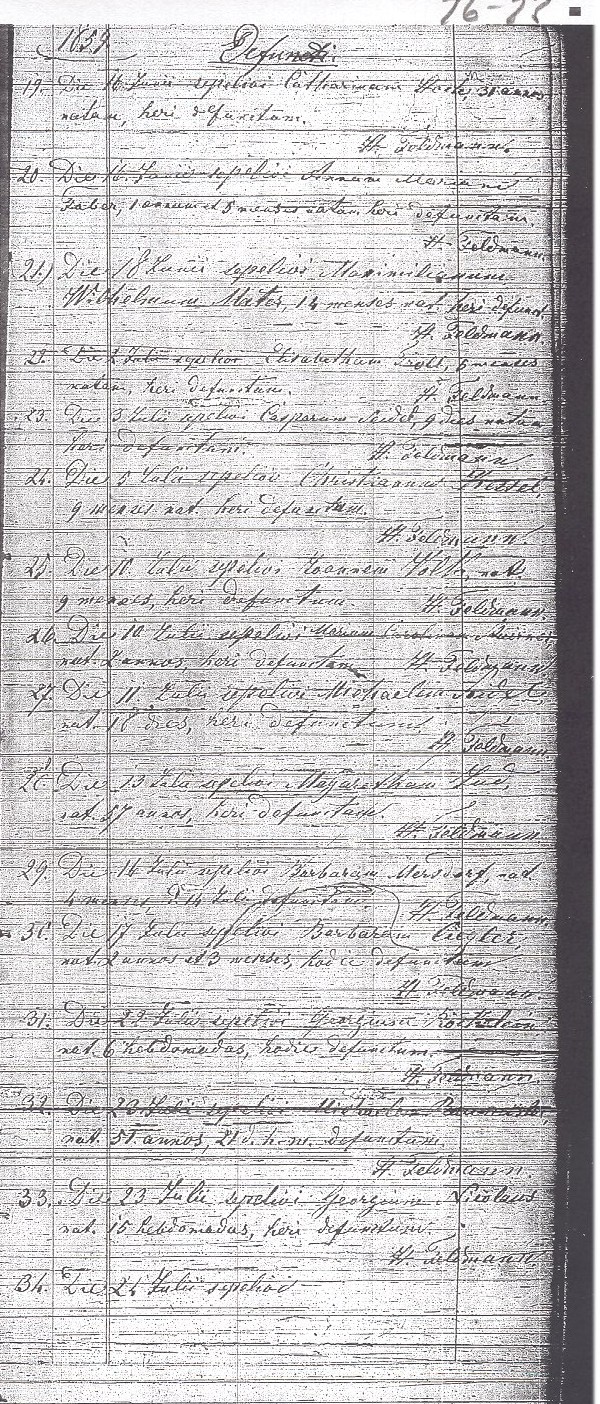 76-77
1859 Defuncti.
19. Die 16 Junii sepelivi Catharinam 31 annos
natam, heri defunctam.
H. Feldmann.
20. Die 16 Junii sepelivi Annam Mariam
Faber, 1 annum et 5 menses natam heri defunctam.
H. Feldmann.
21.) Die 18 Junii sepelivi Maximilianum
Wilhelmum Mater, 14 menses nat. heri defunct.
H. Feldmann.
22. Die 2 Julii sepelivi Elisabetham 5 menses
natam, heri defunctam. H. Feldmann.
23. Die 3 Julii sepelivi Casparum Seidel, 9 dies natum
heri defunctum. H. Feldmann
24. Die 5 Julii sepelivi Christianum Kessel,
9 menses nat. heri defunctum.
H. Feldmann.
25. Die 10. Julii sepelivi Joannem Volk, nat.
9 menses, heri defunctum. H. Feldmann.
26. Die 10 Julii sepelivi Mariam Carolinam
nat. 2 annos, heri defunctam H. Feldmann
27. Die 11 Julii sepelivi Michaelem
nat. 18 dies, heri defunctum.
H. Feldmann
28. Die 13 Julii sepelivi Margaretham
nat. 57 annos, heri defunctam.
H. Feldmann.
29. Die 14 Julii sepelivi Barbaram Mersdorf, nat
4 menses, d. 14 Julii defunctam.
H. Feldmann.
30. Die 17 Julii sepelivi Barbaram Ciegler,
nat. 2 annos et 3 menses, hodie defunctam
H. Feldmann.
31. Die 22 Julii sepelivi Georgium
nat. 6 hebdomadas, hodie defunctum.
H. Feldmann.
32. Die 23 Julii sepelivi Michaelem
nat. 51 annos, 21 d. h. m. defunctum.
H. Feldmann.
33. Die 23 Julii sepelivi Georgium Nicolaus
nat. 15 hebdomadas, heri defunctum.
H. Feldmann.
34. Die 24 Julii sepelivi